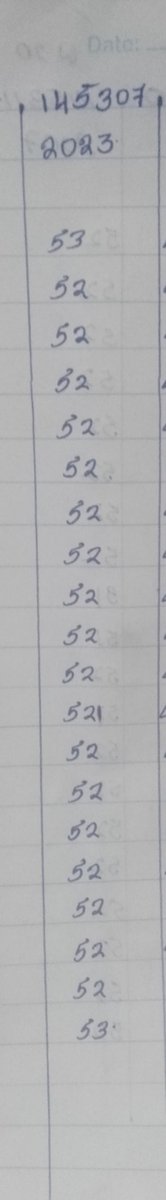 Date:
145307
2023
53
52
52
52
52
52.
52
52
52
52
52
521
52
52
52
52
52
52
52
53.